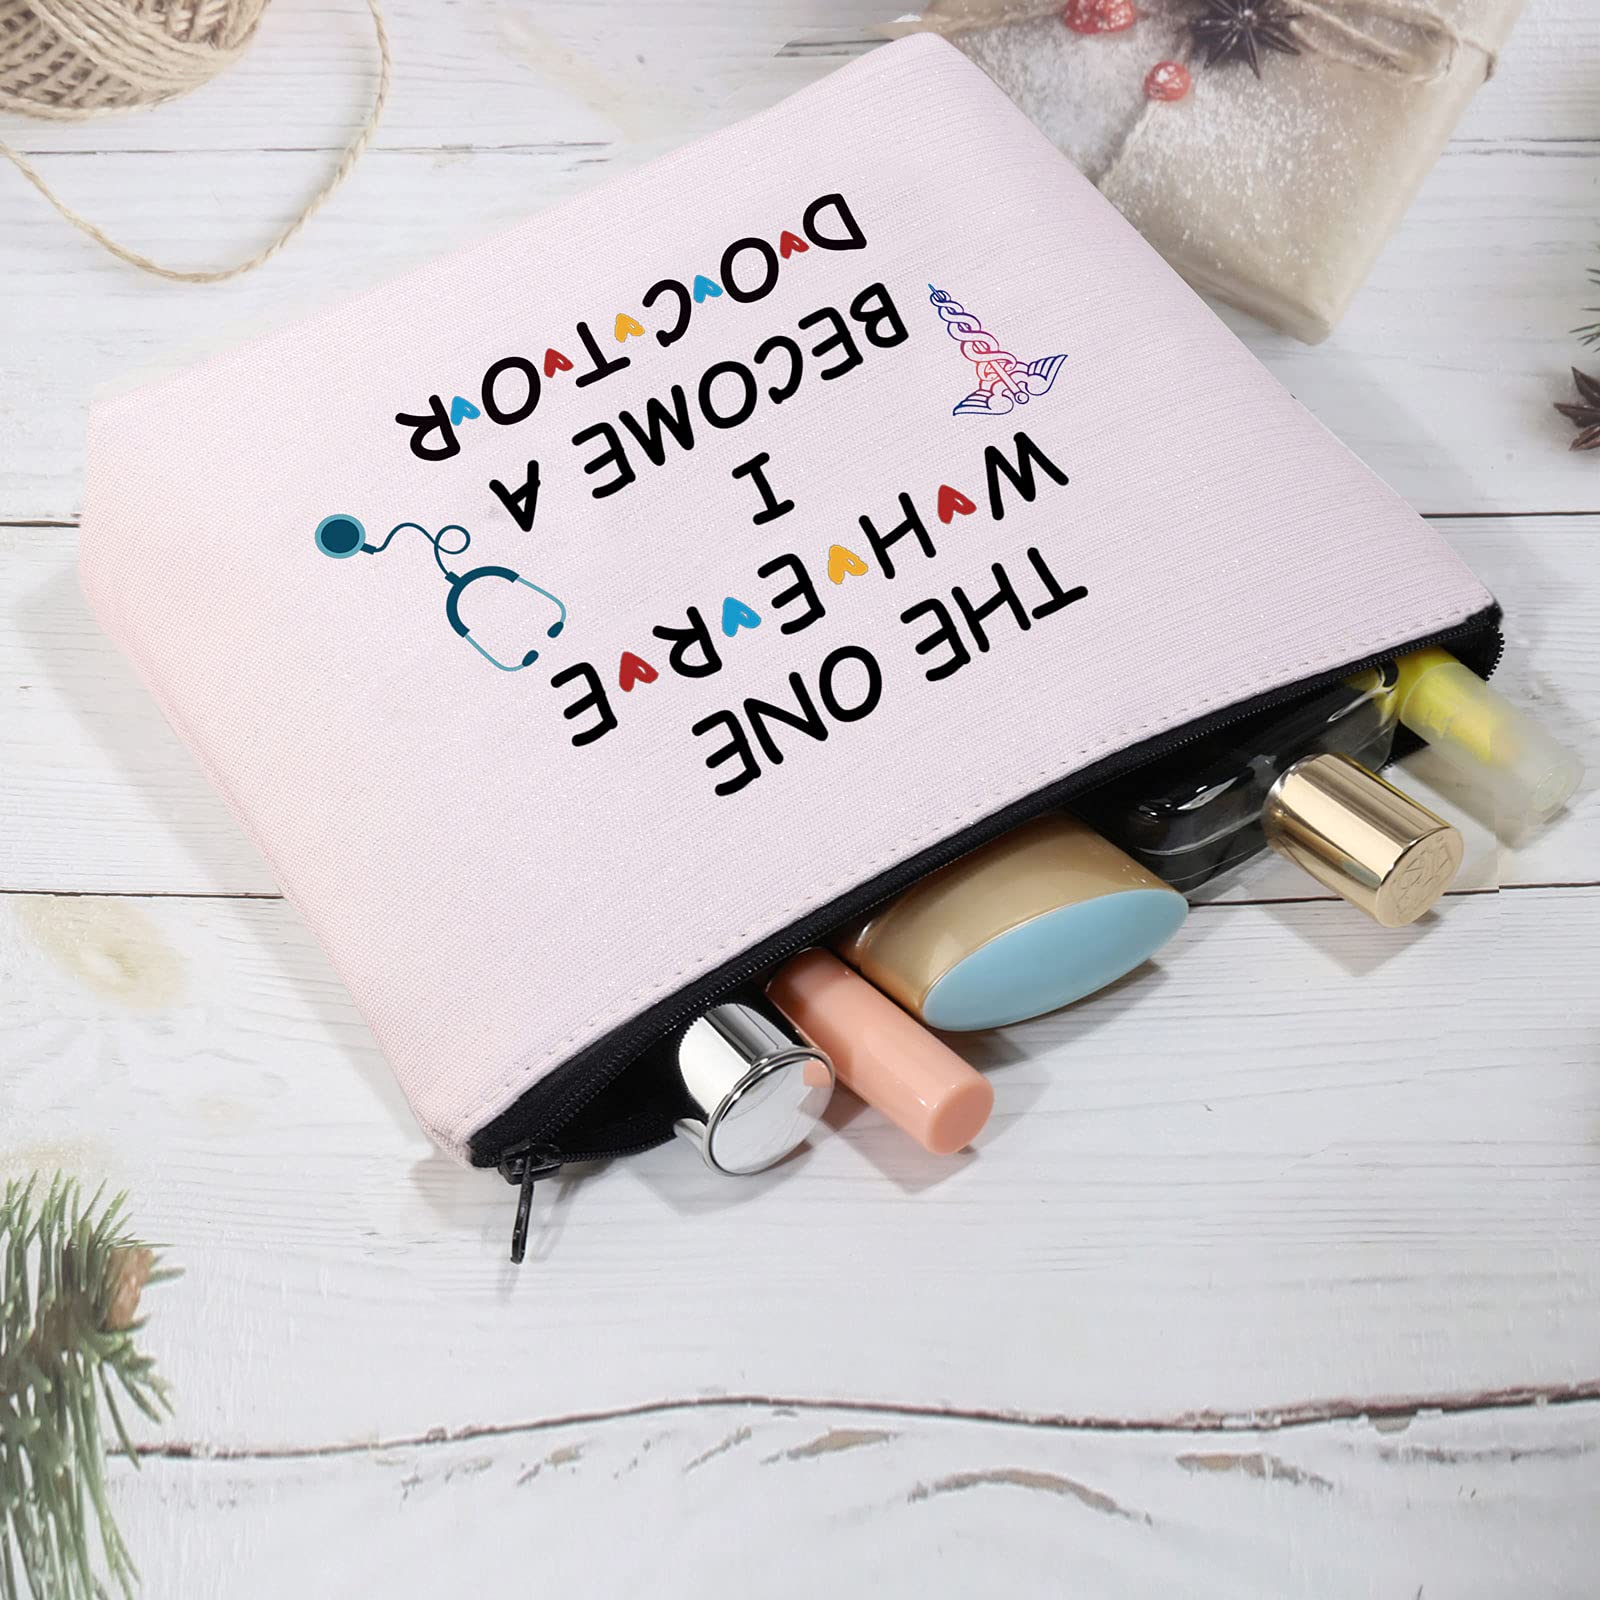 THE ONE
W♥H♥E♥R♥E
I
BECOME A
D♥O♥C♥T♥O♥R